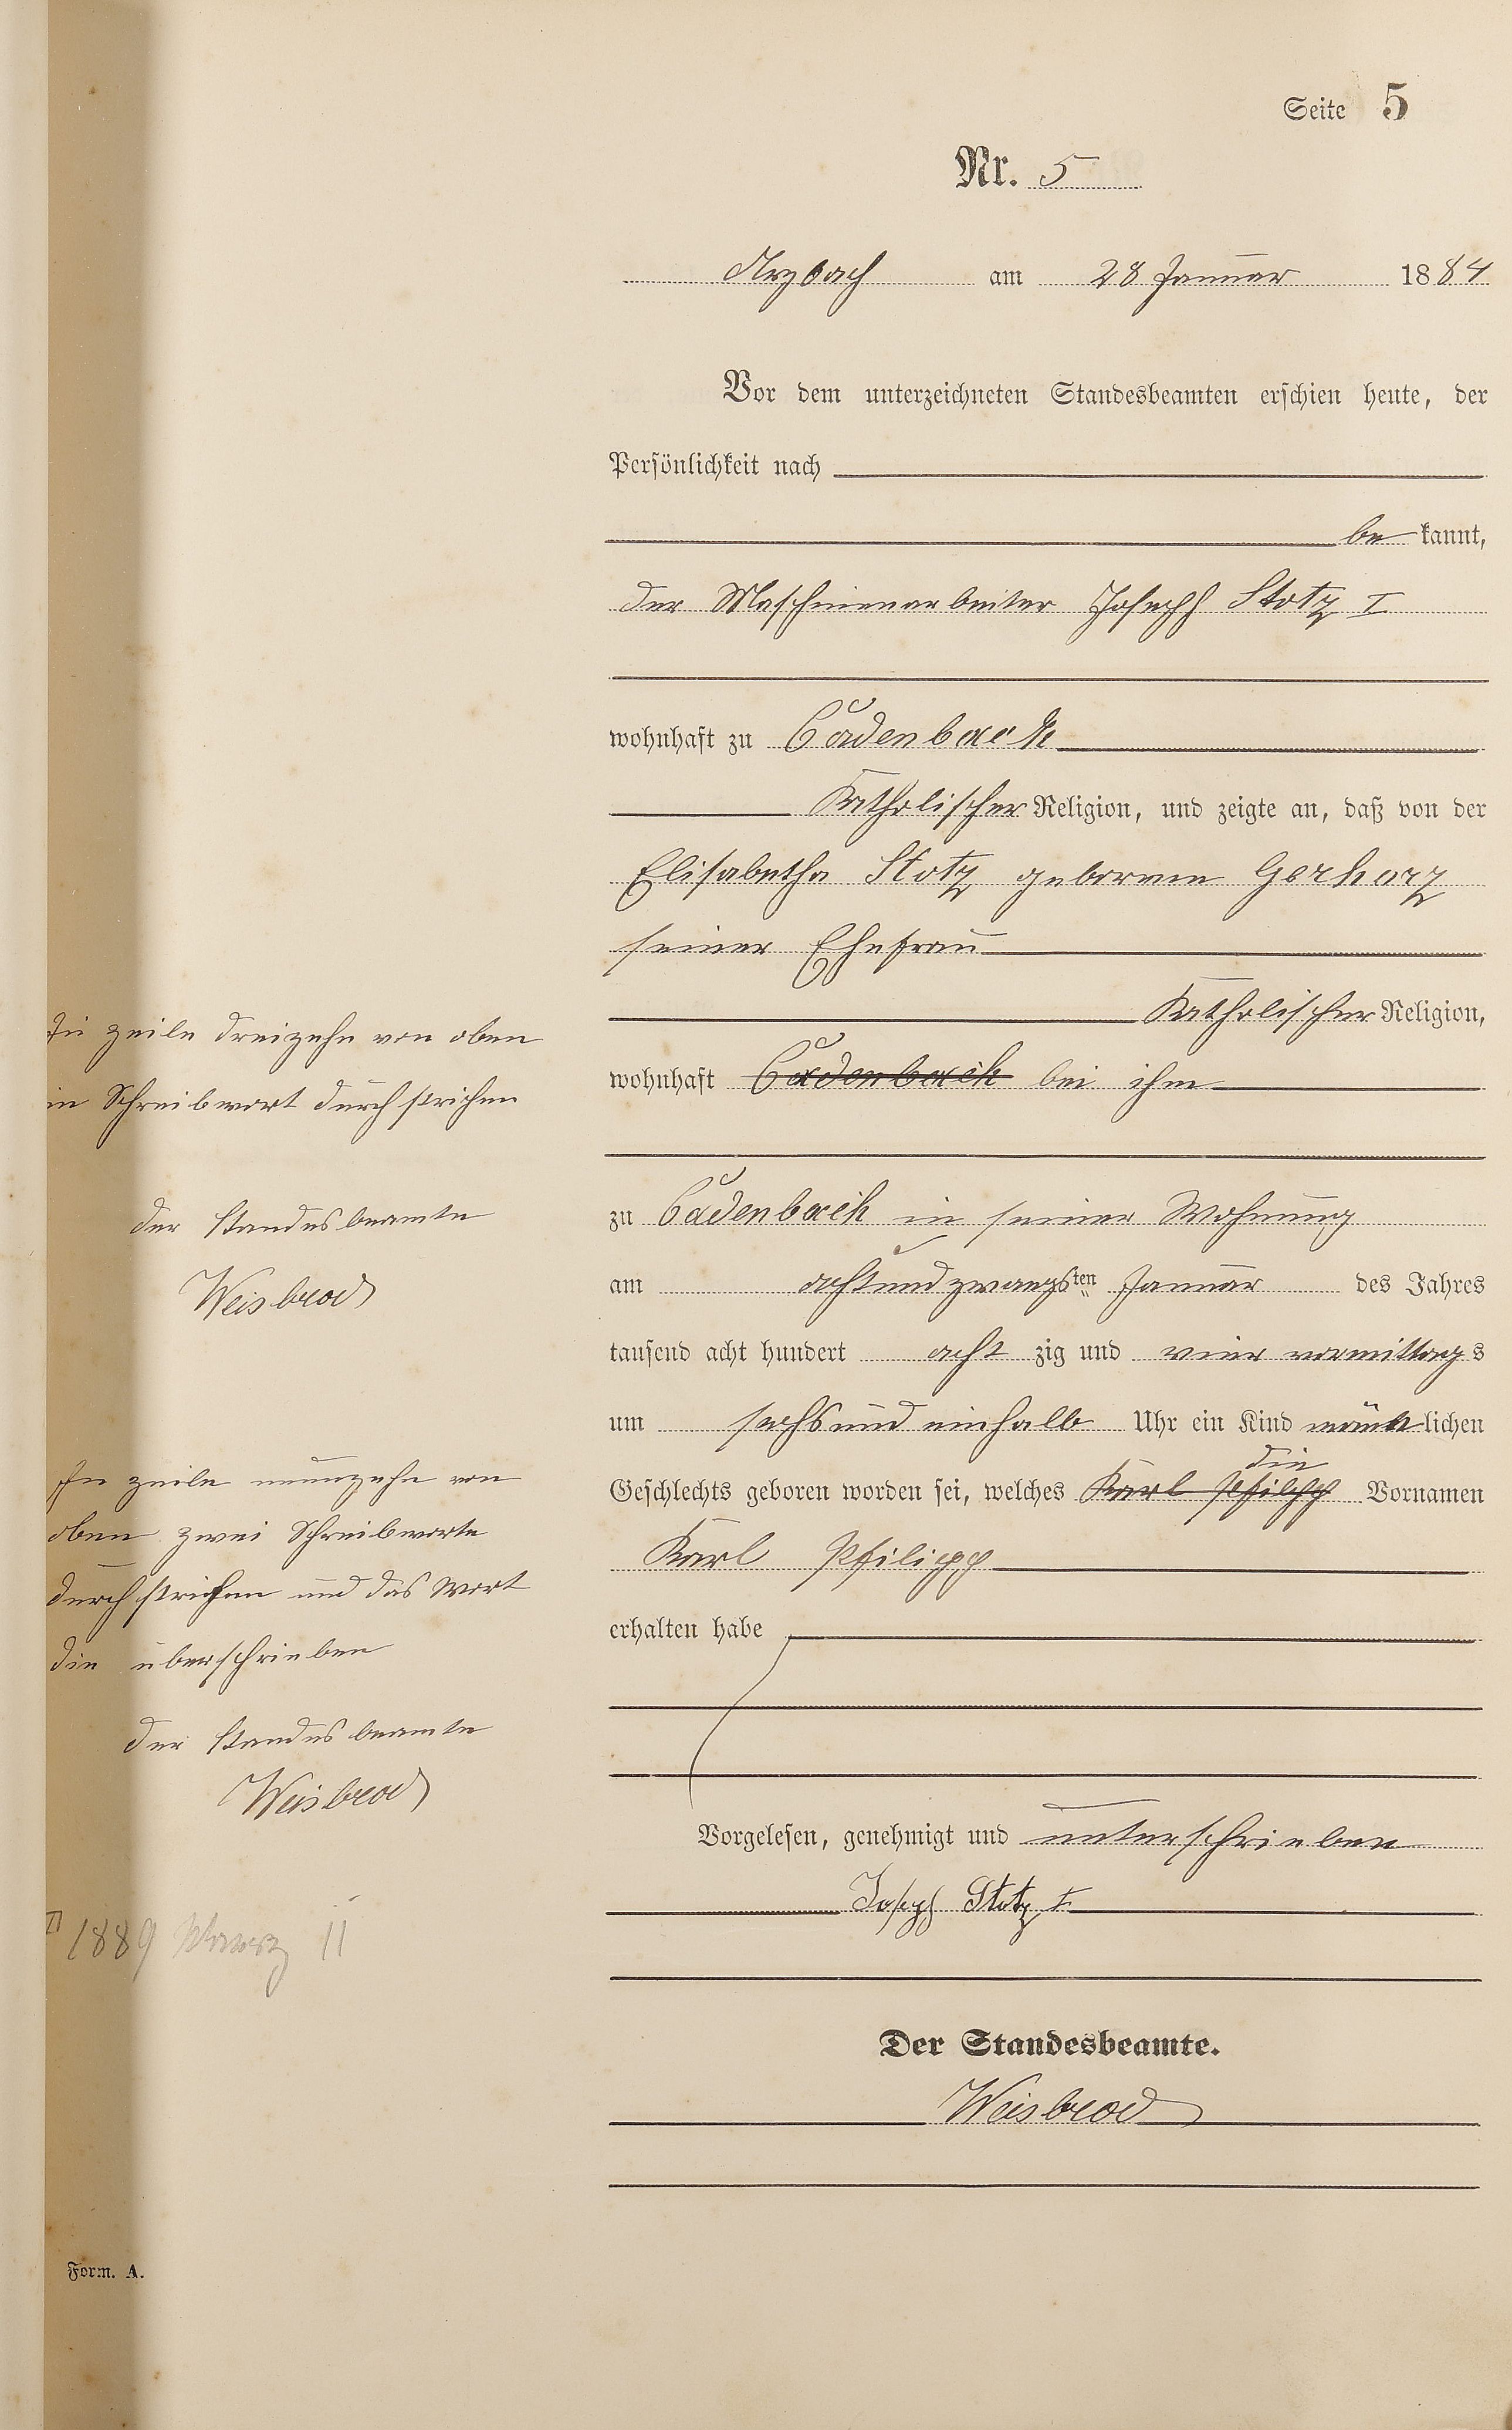 Seite 5
Nr. 5
Arzbach am 28 Januar 1884
Vor dem unterzeichneten Standesbeamten erschien heute, der
Persönlichkeit nach
be kannt,
der Maschinenarbeiter Joseph Stotz I
wohnhaft zu Cadenbach
Katholischer Religion, und zeigte an, daß von der
Elisabetha Stotz geborene Gerharz
seiner Ehefrau
Katholischer Religion,
wohnhaft Cadenbach bei ihm
zu Cadenbach in seiner Wohnung
am achtundzwanzigsten Januar des Jahres
tausend acht hundert acht zig und vier vormittags
um sechs und einhalb Uhr ein Kind männlichen
die
Geschlechts geboren worden sei, welches Karl Philipp Vornamen
Karl Philipp
erhalten habe
Vorgelesen, genehmigt und unterschrieben
Joseph Stotz I
Der Standesbeamte.
Weisbrod
zeile dreizehn von oben
in Schreibwort durchstrichen
der Standesbeamte
Weisbrod
In zeile neunzehn von
oben zwei Schreibworte
durchstrichen und das Wort
die überschrieben
der Standesbeamte
Weisbrod
1889 11
Form. A.